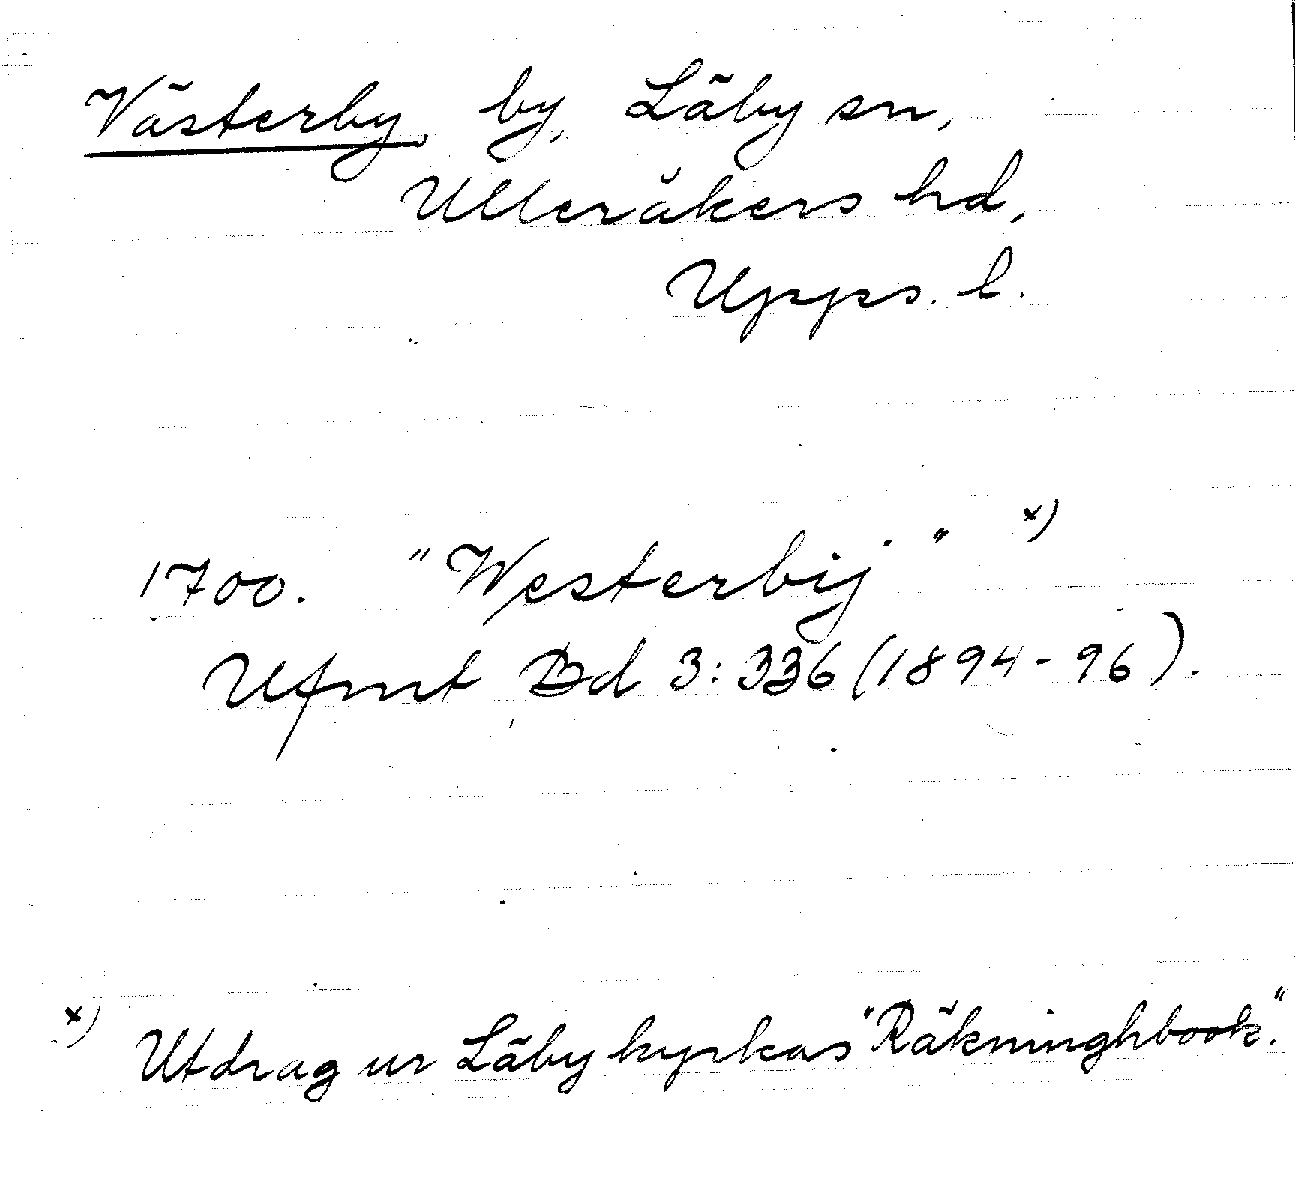 Västerby by, Läby sn,
Ulleråkers hd,
Upps. l.
1700. "Westerbij" x)
Ufmt Bd 3:336 (1894-96).
x) Utdrag ur Läby kyrkas "Räkninghbook".